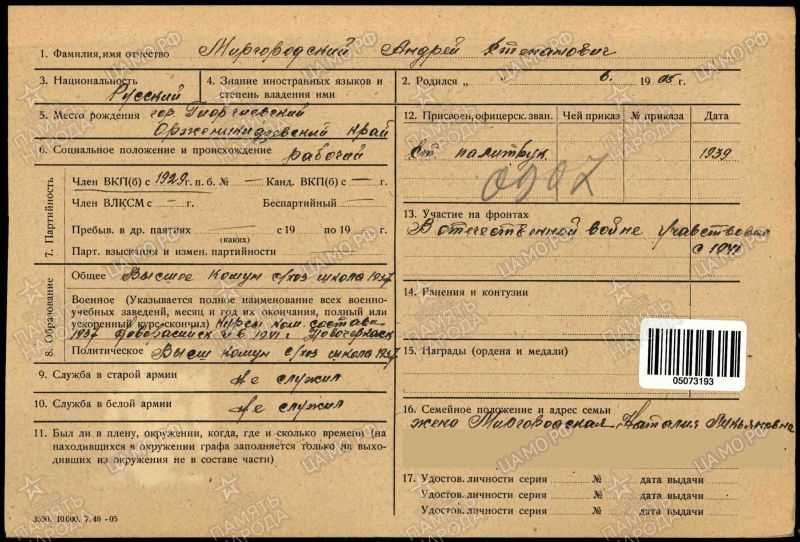 1. Фамилия, имя отчество Миргородский Андрей Степанович
3. Национальность Русский
4. Знание иностранных языков и степень владения ими
2. Родился „ „ 6. 1905 г.
5. Место рождения гор. Георгиевский
Орженикидзевский край
6. Социальное положение и происхождение рабочий
7. Партийность
Член ВКП(б) с 1929 г. п. б. № — Канд. ВКП(б) с — г.
Член ВЛКСМ с — г. Беспартийный
Пребыв. в др. патиях с 19 по 19 г.
(каких)
Парт. взыскания и измен. партийности
8. Образование
Общее Высшее комун с/хоз школа 1937
Военное (Указывается полное наименование всех военно-
учебных заведений, месяц и год их окончания, полный или
ускоренный курс скончил) Курсы ком. состава
1937 и в 1941 г. Новочеркаск
Политическое Высш комун с/хоз школа 1937
9. Служба в старой армии Не служил
10. Служба в белой армии Не служил
11. Был ли в плену, окружении, когда, где и сколько времени (на
находившихся в окружении графа заполняется только на выхо-
дивших из окружения не в составе части)
3550. 10000. 7. 46 - 05
12. Присвоен, офицерск. зван. Чей приказ № приказа Дата
Ст политрук 1939
0907
13. Участие на фронтах
В отечественной войне участвовал
с 1941
14. Ранения и контузии
15. Награды (ордена и медали)
05073193
16. Семейное положение и адрес семьи
жена Миргородская Наталия
17. Удостов. личности серия № дата выдачи
Удостов. личности серия № дата выдачи
Удостов. личности серия № дата выдачи
ПАМЯТЬ НАРОДА
ЦАМО.РФ